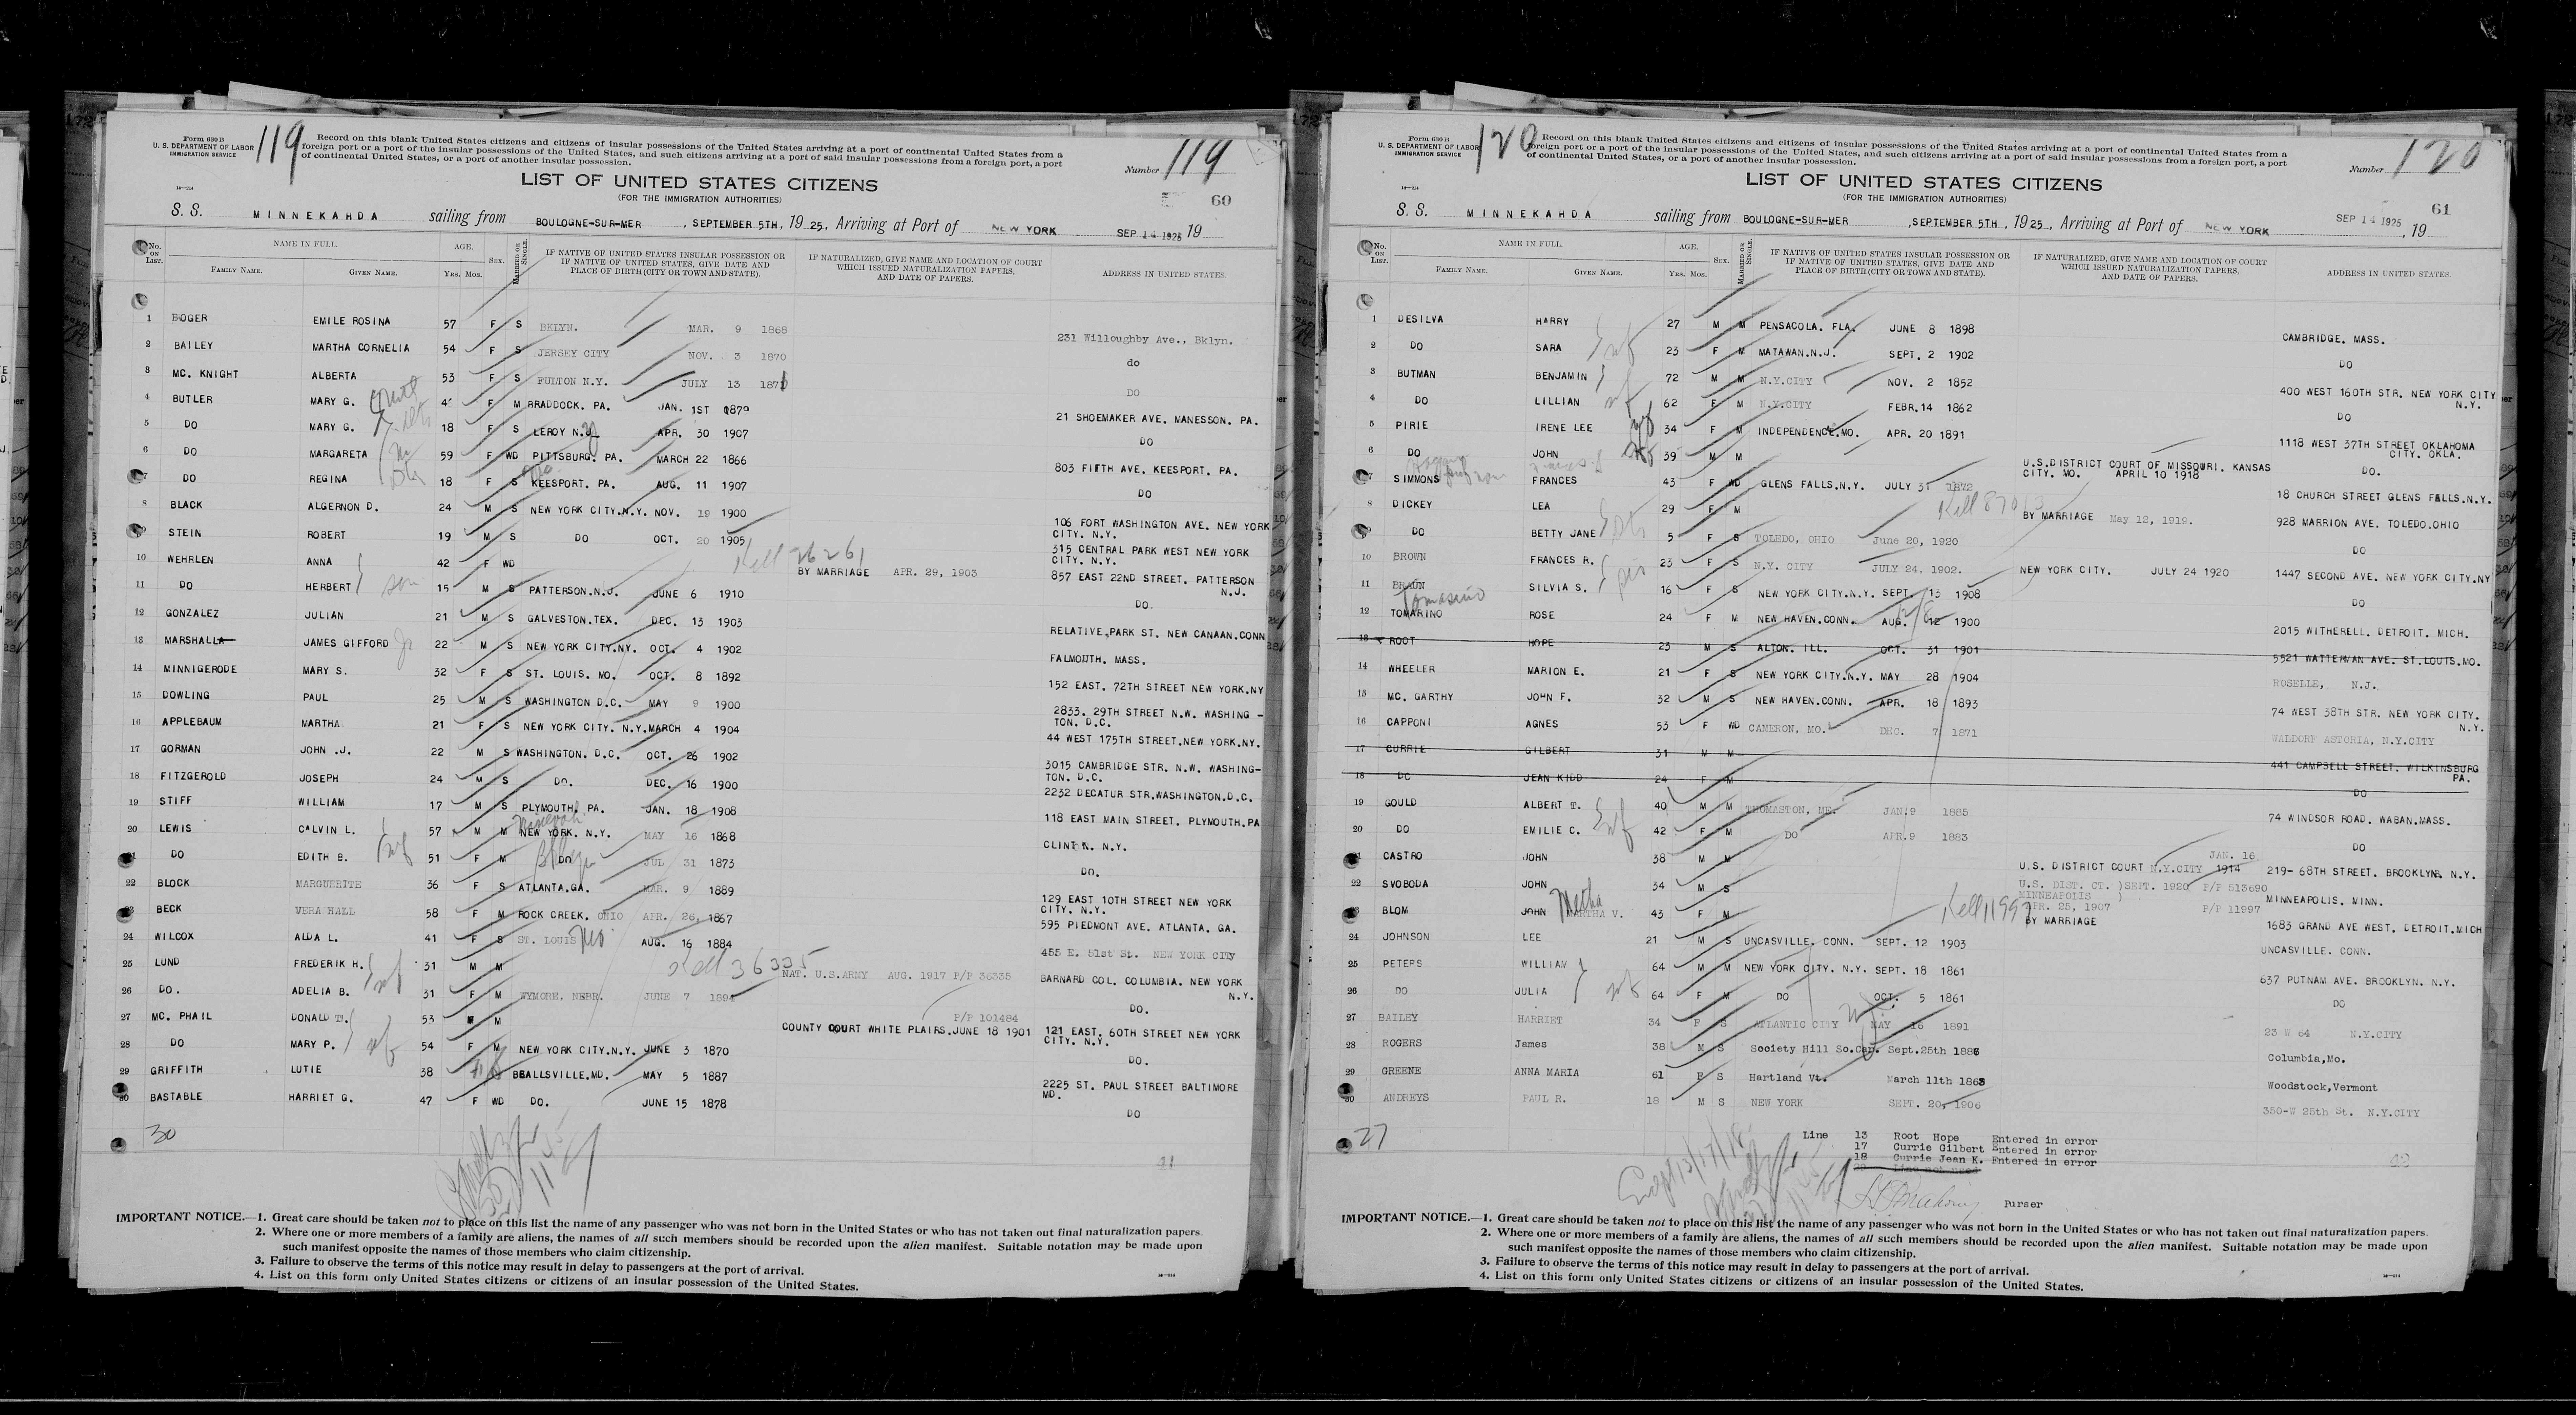 Form 630 B
U. S. DEPARTMENT OF LABOR
IMMIGRATION SERVICE
119
Record on this blank United States citizens and citizens of insular possessions of the United States arriving at a port of continental United States from a
foreign port or a port of the insular possessions of the United States, and such citizens arriving at a port of said insular possessions from a foreign port, a port
of continental United States, or a port of another insular possession.
Number 119
LIST OF UNITED STATES CITIZENS
(FOR THE IMMIGRATION AUTHORITIES)
60
S. S. MINNEKAHDA sailing from BOULOGNE-SUR-MER, SEPTEMBER 5TH, 1925, Arriving at Port of NEW YORK SEP 14 1925 19
No. ON LIST. NAME IN FULL. FAMILY NAME. GIVEN NAME. AGE. Yrs. Mos. SEX. MARRIED OR SINGLE. IF NATIVE OF UNITED STATES INSULAR POSSESSION OR IF NATIVE OF UNITED STATES, GIVE DATE AND PLACE OF BIRTH (CITY OR TOWN AND STATE). IF NATURALIZED, GIVE NAME AND LOCATION OF COURT WHICH ISSUED NATURALIZATION PAPERS, AND DATE OF PAPERS. ADDRESS IN UNITED STATES.
1 BOGER EMILE ROSINA 57 F S BKLYN. MAR. 9 1868 231 Willoughby Ave., Bklyn.
2 BAILEY MARTHA CORNELIA 54 F S JERSEY CITY NOV. 3 1870 do
3 MC. KNIGHT ALBERTA 53 F S FULTON N.Y. JULY 13 1871 DO
4 BUTLER MARY G. F M BRADDOCK. PA. JAN. 1ST 1879 21 SHOEMAKER AVE. MANESSON. PA.
5 DO MARY G. 18 F S LEROY N.Y. APR. 30 1907 DO
6 DO MARGARETA 59 F WD PITTSBURG. PA. MARCH 22 1866 803 FIFTH AVE. KEESPORT. PA.
7 DO REGINA 18 F S KEESPORT. PA. AUG. 11 1907 DO
8 BLACK ALGERNON D. 24 M S NEW YORK CITY.N.Y. NOV. 19 1900 106 FORT WASHINGTON AVE. NEW YORK CITY. N.Y.
9 STEIN ROBERT 19 M S DO OCT. 20 1905 315 CENTRAL PARK WEST NEW YORK CITY. N.Y.
10 WEHRLEN ANNA 42 F WD 26261 BY MARRIAGE APR. 29, 1903 857 EAST 22ND STREET. PATTERSON N.J.
11 DO HERBERT son 15 M S PATTERSON.N.J. JUNE 6 1910 DO.
12 GONZALEZ JULIAN 21 M S GALVESTON.TEX. DEC. 13 1903 RELATIVE,PARK ST. NEW CANAAN.CONN
13 MARSHALLA JAMES GIFFORD Jr 22 M S NEW YORK CITY.NY. OCT. 4 1902 FALMOUTH. MASS.
14 MINNIGERODE MARY S. 32 F S ST. LOUIS. MO. OCT. 8 1892 152 EAST. 72TH STREET NEW YORK.NY
15 DOWLING PAUL 25 M S WASHINGTON D.C. MAY 9 1900 2833. 29TH STREET N.W. WASHING - TON. D.C.
16 APPLEBAUM MARTHA 21 F S NEW YORK CITY. N.Y. MARCH 4 1904 44 WEST 175TH STREET.NEW YORK.NY.
17 GORMAN JOHN .J. 22 M S WASHINGTON. D.C. OCT. 26 1902 3015 CAMBRIDGE STR. N.W. WASHING- TON. D.C.
18 FITZGEROLD JOSEPH 24 M S DO. DEC. 16 1900 2232 DECATUR STR.WASHINGTON.D.C.
19 STIFF WILLIAM 17 M S PLYMOUTH. PA. JAN. 18 1908 118 EAST MAIN STREET. PLYMOUTH.PA
20 LEWIS CALVIN L. 57 M M NEW YORK. N.Y. MAY 16 1868 CLINTON. N.Y.
21 DO EDITH B. wf 51 F M DO JUL 31 1873 DO.
22 BLOCK MARGUERITE 36 F S ATLANTA.GA. MAR. 9 1889 129 EAST 10TH STREET NEW YORK CITY. N.Y.
23 BECK VERA HALL 58 F M ROCK CREEK. OHIO APR. 26, 1867 595 PIEDMONT AVE. ATLANTA. GA.
24 WILCOX ALDA L. 41 F S ST. LOUIS Mo AUG. 16 1884 455 E. 51st St. NEW YORK CITY
25 LUND FREDERIK H. 31 M M 36335 NAT. U.S.ARMY AUG. 1917 P/P 36335 BARNARD COL. COLUMBIA. NEW YORK N.Y.
26 DO. ADELIA B. wf 31 F M WYMORE, NEBR. JUNE 7 1894 DO.
27 MC. PHAIL DONALD T. 53 M M P/P 101484 COUNTY COURT WHITE PLAIRS.JUNE 18 1901 121 EAST. 60TH STREET NEW YORK CITY. N.Y.
28 DO MARY P. wf 54 F M NEW YORK CITY.N.Y. JUNE 3 1870 DO.
29 GRIFFITH LUTIE 38 BEALLSVILLE.MD. MAY 5 1887 2225 ST. PAUL STREET BALTIMORE MD.
30 BASTABLE HARRIET G. 47 F WD DO. JUNE 15 1878 DO
30
41
IMPORTANT NOTICE.—1. Great care should be taken not to place on this list the name of any passenger who was not born in the United States or who has not taken out final naturalization papers.
2. Where one or more members of a family are aliens, the names of all such members should be recorded upon the alien manifest. Suitable notation may be made upon
such manifest opposite the names of those members who claim citizenship.
3. Failure to observe the terms of this notice may result in delay to passengers at the port of arrival.
4. List on this form only United States citizens or citizens of an insular possession of the United States.
Form 630 B
U. S. DEPARTMENT OF LABOR
IMMIGRATION SERVICE
120
Record on this blank United States citizens and citizens of insular possessions of the United States arriving at a port of continental United States from a
foreign port or a port of the insular possessions of the United States, and such citizens arriving at a port of said insular possessions from a foreign port, a port
of continental United States, or a port of another insular possession.
Number 120
LIST OF UNITED STATES CITIZENS
(FOR THE IMMIGRATION AUTHORITIES)
61
S. S. MINNEKAHDA sailing from BOULOGNE-SUR-MER, SEPTEMBER 5TH, 1925, Arriving at Port of NEW YORK SEP 14 1925, 19
No. ON LIST. NAME IN FULL. FAMILY NAME. GIVEN NAME. AGE. Yrs. Mos. SEX. MARRIED OR SINGLE. IF NATIVE OF UNITED STATES INSULAR POSSESSION OR IF NATIVE OF UNITED STATES, GIVE DATE AND PLACE OF BIRTH (CITY OR TOWN AND STATE). IF NATURALIZED, GIVE NAME AND LOCATION OF COURT WHICH ISSUED NATURALIZATION PAPERS, AND DATE OF PAPERS. ADDRESS IN UNITED STATES.
1 DESILVA HARRY 27 M M PENSACOLA. FLA. JUNE 8 1898 CAMBRIDGE. MASS.
2 DO SARA wf 23 F M MATAWAN.N.J. SEPT. 2 1902 DO
3 BUTMAN BENJAMIN 72 M M N.Y.CITY NOV. 2 1852 400 WEST 160TH STR. NEW YORK CITY N.Y.
4 DO LILLIAN wf 62 F M N.Y.CITY FEBR.14 1862 DO
5 PIRIE IRENE LEE wf 34 F M INDEPENDENCE.MO. APR. 20 1891 1118 WEST 37TH STREET OKLAHOMA CITY. OKLA.
6 DO JOHN 39 M M U.S.DISTRICT COURT OF MISSOURI. KANSAS CITY. MO. APRIL 10 1918 DO.
7 SIMMONS FRANCES 43 F WD GLENS FALLS.N.Y. JULY 31 1872 18 CHURCH STREET GLENS FALLS.N.Y.
8 DICKEY LEA 29 F M BY MARRIAGE May 12, 1919. 928 MARRION AVE. TOLEDO.OHIO
9 DO BETTY JANE 5 F S TOLEDO, OHIO June 20, 1920 DO
10 BROWN FRANCES R. 23 F S N.Y. CITY JULY 24, 1902. NEW YORK CITY. JULY 24 1920 1447 SECOND AVE. NEW YORK CITY.NY
11 BRAUN SILVIA S. 16 F S NEW YORK CITY.N.Y. SEPT. 13 1908 DO
Tomasino
12 TOMARINO ROSE 24 F M NEW HAVEN.CONN. AUG. 12 1900 2015 WITHERELL. DETROIT. MICH.
13 ROOT HOPE 23 M S ALTON. ILL. OCT. 31 1901 5521 WATTERMAN AVE. ST.LOUIS.MO.
14 WHEELER MARION E. 21 F S NEW YORK CITY.N.Y. MAY 28 1904 ROSELLE, N.J.
15 MC. GARTHY JOHN F. 32 M S NEW HAVEN.CONN. APR. 18 1893 74 WEST 38TH STR. NEW YORK CITY. N.Y.
16 CAPPONI AGNES 53 F WD CAMERON, MO. DEC. 7 1871 WALDORF ASTORIA, N.Y.CITY
17 CURRIE GILBERT 31 M M 441 CAMPBELL STREET. WILKINSBURG PA.
18 DO JEAN KIDD 24 F M DO
19 GOULD ALBERT T. 40 M M THOMASTON, ME. JAN.9 1885 74 WINDSOR ROAD. WABAN.MASS.
20 DO EMILIE C. wf 42 F M DO APR.9 1883 DO
21 CASTRO JOHN 38 M M U.S. DISTRICT COURT N.Y.CITY JAN. 16, 1914 219- 68TH STREET. BROOKLYN. N.Y.
22 SVOBODA JOHN 34 M S U.S. DIST. CT. ) SEPT. 1920 P/P 513690 MINNEAPOLIS ) MINNEAPOLIS. MINN.
23 BLOM JOHN MARTHA V. 43 F M APR. 25, 1907 P/P 11997 BY MARRIAGE 1683 GRAND AVE WEST. DETROIT.MICH
24 JOHNSON LEE 21 M S UNCASVILLE. CONN. SEPT. 12 1903 UNCASVILLE. CONN.
25 PETERS WILLIAM 64 M M NEW YORK CITY. N.Y. SEPT. 18 1861 637 PUTNAM AVE. BROOKLYN. N.Y.
26 DO JULIA wf 64 F M DO OCT. 5 1861 DO
27 BAILEY HARRIET 34 F S ATLANTIC CITY MAY 16 1891 23 W 64 N.Y.CITY
28 ROGERS James 38 M S Society Hill So.Car. Sept.25th 1886 Columbia,Mo.
29 GREENE ANNA MARIA 61 F S Hartland Vt. March 11th 1863 Woodstock,Vermont
30 ANDREYS PAUL R. 18 M S NEW YORK SEPT. 20, 1906 350-W 25th St. N.Y.CITY
27
Line 13 Root Hope Entered in error
17 Currie Gilbert Entered in error
18 Currie Jean K. Entered in error
Purser
42
IMPORTANT NOTICE.—1. Great care should be taken not to place on this list the name of any passenger who was not born in the United States or who has not taken out final naturalization papers.
2. Where one or more members of a family are aliens, the names of all such members should be recorded upon the alien manifest. Suitable notation may be made upon
such manifest opposite the names of those members who claim citizenship.
3. Failure to observe the terms of this notice may result in delay to passengers at the port of arrival.
4. List on this form only United States citizens or citizens of an insular possession of the United States.